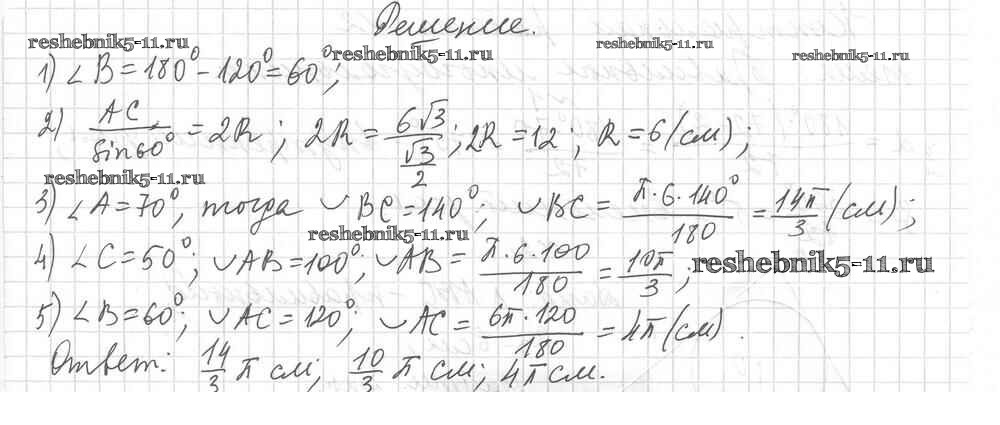 Решение.
reshebnik5-11.ru
reshebnik5-11.ru
reshebnik5-11.ru
reshebnik5-11.ru
1) ∠B = 180° - 120° = 60°;
2) AC/sin60° = 2R; 2R = 6√3/(√3/2); 2R = 12; R = 6 (см);
reshebnik5-11.ru
3) ∠A = 70°, тогда ◡BC = 140°; ◡BC = π·6·140°/180 = 14π/3 (см);
reshebnik5-11.ru
4) ∠C = 50°; ◡AB = 100°; ◡AB = π·6·100/180 = 10π/3;
reshebnik5-11.ru
5) ∠B = 60°; ◡AC = 120°; ◡AC = 6π·120/180 = 4π (см).
Ответ: 14/3 π см; 10/3 π см; 4π см.